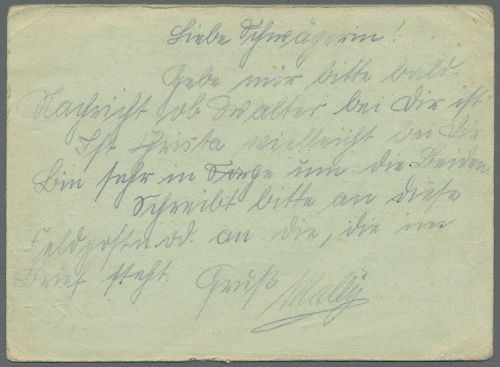 Liebe Schwägerin!
Gebe mir bitte bald.
Nachricht ob Walter bei Dir ist
Ist Christa vielleicht bei Dir
Bin sehr in Sorge um die Beiden
Schreibt bitte an diese
Feldpostn od. an die, die im
Brief steht
Gruß Mally